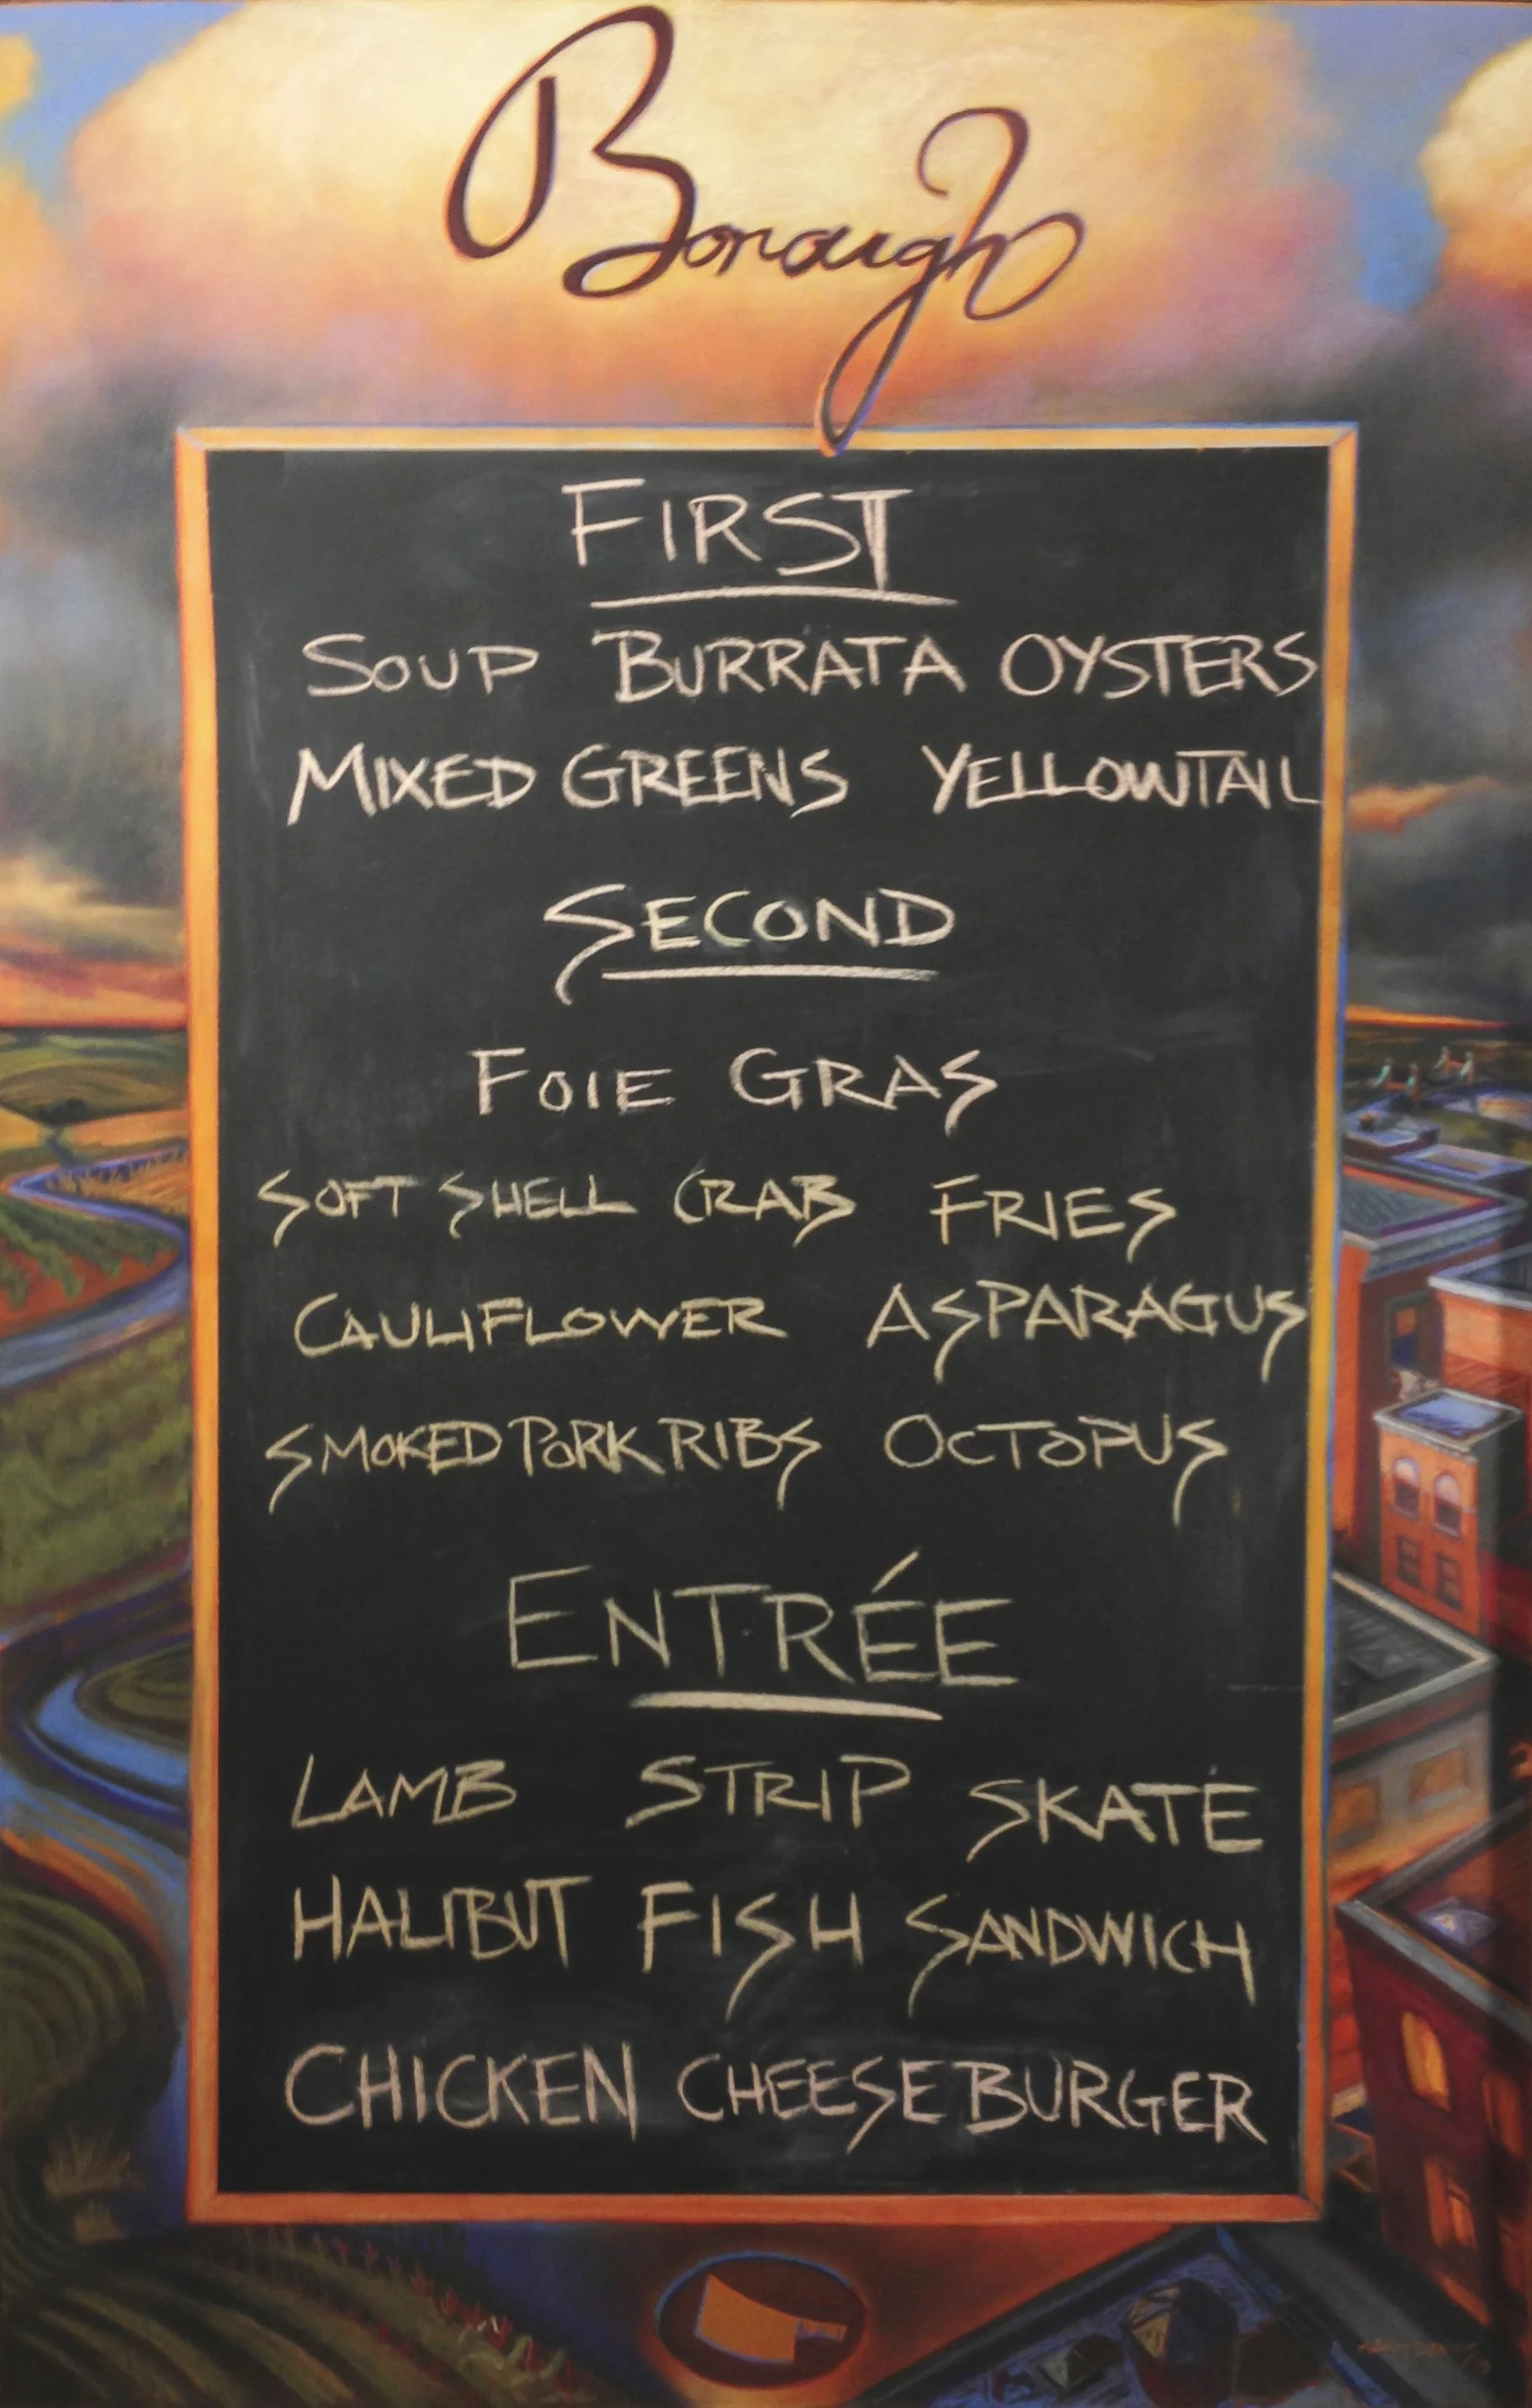 Borough
FIRST
SOUP BURRATA OYSTERS
MIXED GREENS YELLOWTAIL
SECOND
FOIE GRAS
SOFT SHELL CRAB FRIES
CAULIFLOWER ASPARAGUS
SMOKED PORK RIBS OCTOPUS
ENTRÉE
LAMB STRIP SKATE
HALIBUT FISH SANDWICH
CHICKEN CHEESEBURGER